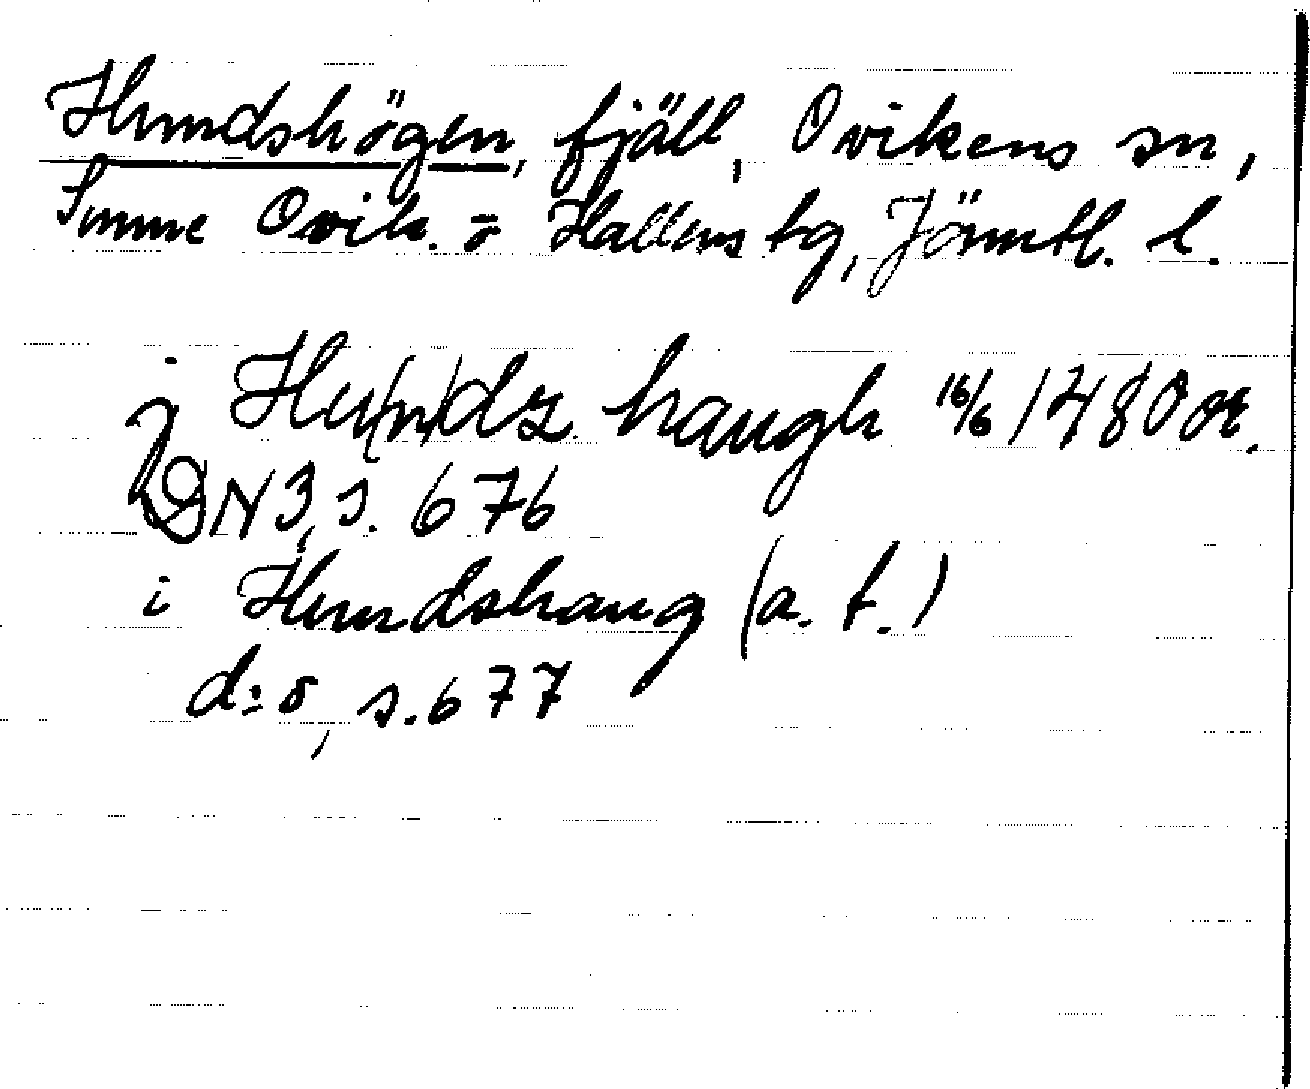 Hundshögen, fjäll, Ovikens sn,
Sunne Ovik. o Hallens tg, Jämtl. l.
j Hu(n)dz haugh 16/6 1480 or.
DN 3, s. 676
i Hundshaug (a. t.)
d:o, s. 677